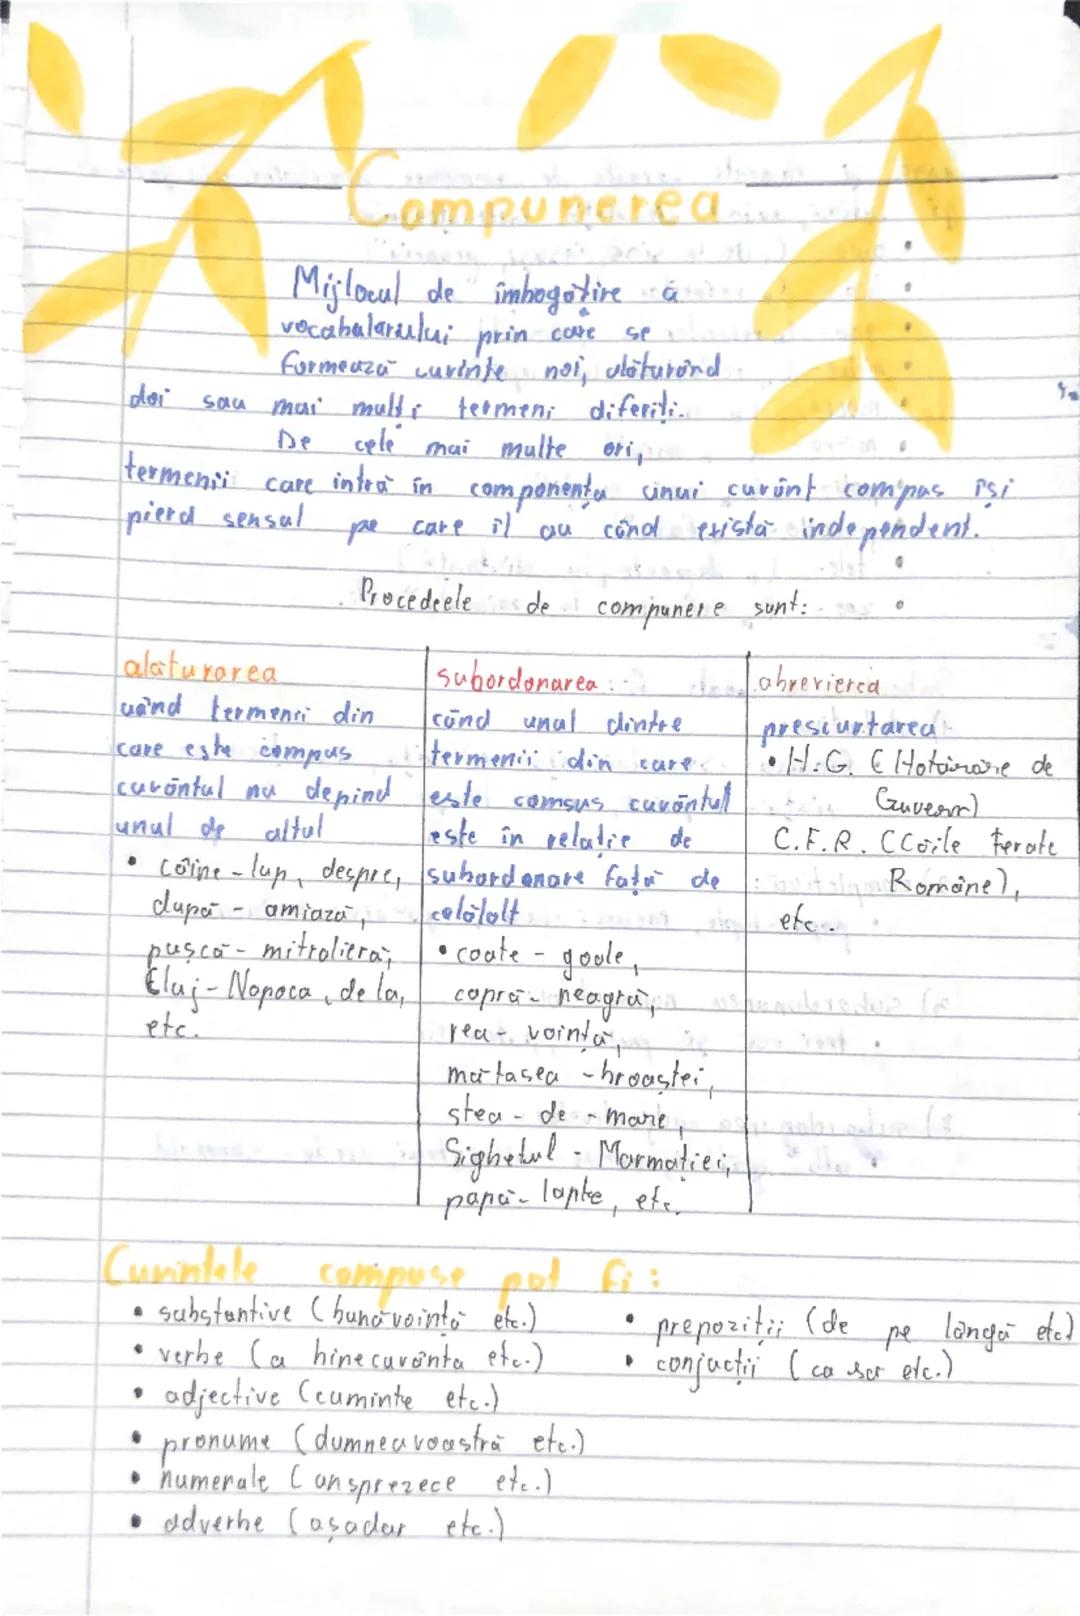 Compunerea
Mijlocul de îmbogățire a
vocabularului prin care se
formează cuvinte noi, alăturând
doi sau mai mulți termeni diferiți.
De cele mai multe ori,
termenii care intră în componența unui cuvânt compus își
pierd sensul pe care îl au când există independent.
Procedeele de compunere sunt:
alăturarea
când termenii din
care este compus
cuvântul nu depind
unul de altul
• câine-lup, despre,
după-amiază,
pușcă-mitralieră,
Cluj-Napoca, de la,
etc.
subordonarea:
când unul dintre
termenii din care
este comsus cuvântul
este în relație de
subordonare față de
celălalt
• coate-goale,
capră-neagră,
rea-voință,
mătasea-broaștei,
stea-de-mare,
Sighetul-Marmației,
papă-lapte, etc.
abrevierea
prescurtarea
• H.G. (Hotărâre de
Guvern)
C.F.R. (Căile Ferate
Române),
etc.
Cuvintele compuse pot fi:
• substantive (bunăvoință etc.)
• verbe (a binecuvânta etc.)
• adjective (cuminte etc.)
• pronume (dumneavoastră etc.)
• numerale (unsprezece etc.)
• adverbe (așadar etc.)
• prepoziții (de pe lângă etc)
• conjucții (ca să etc.)